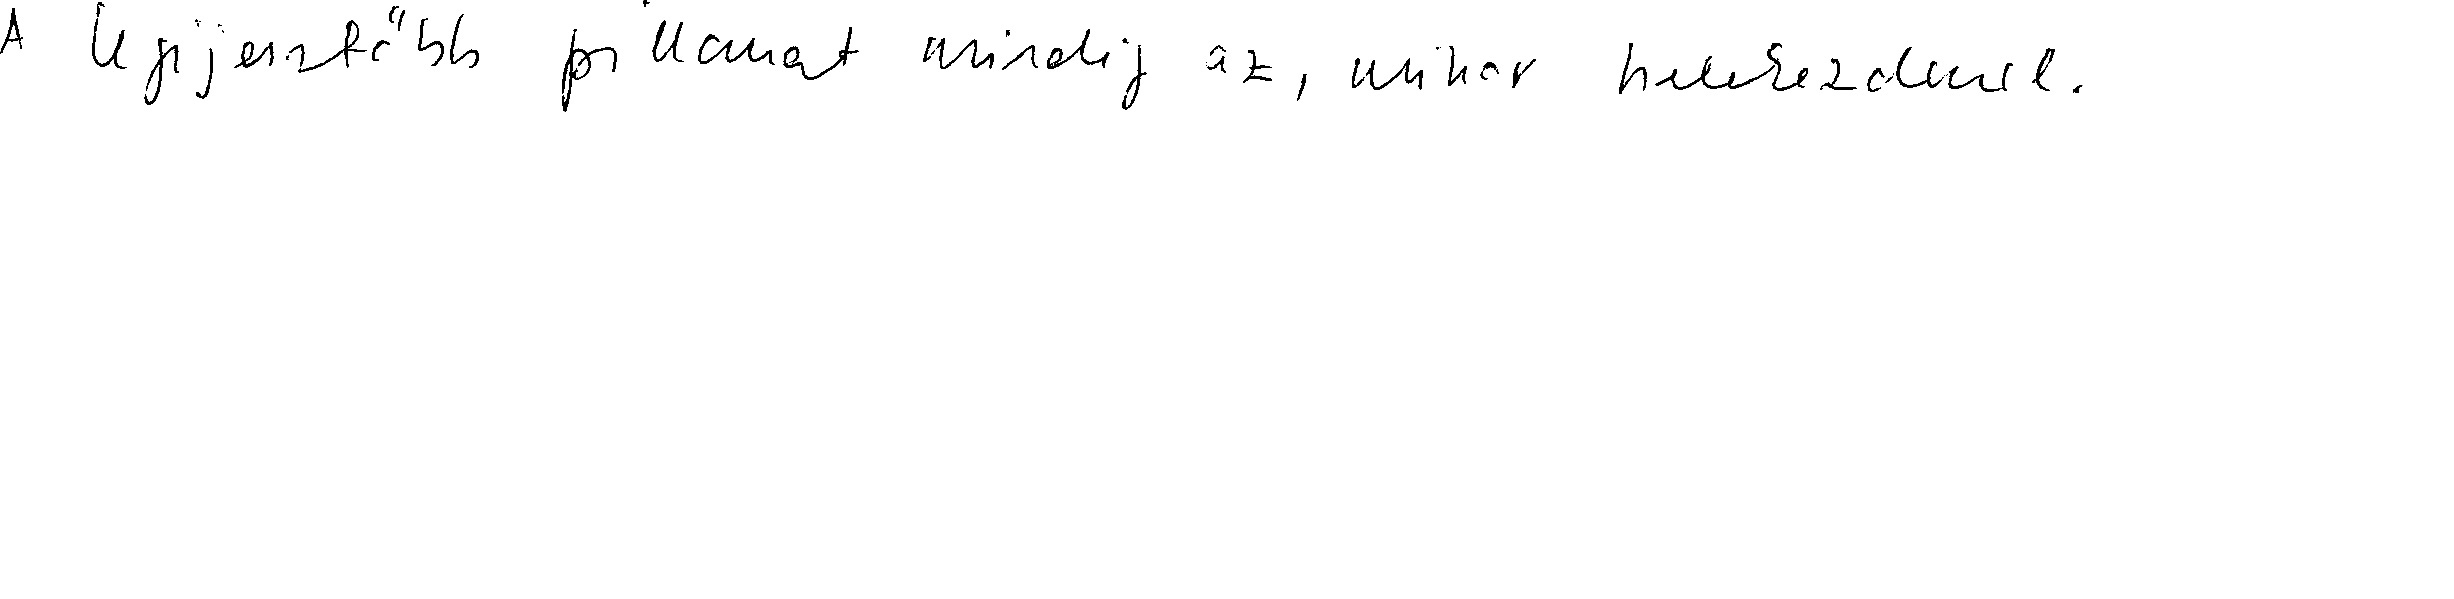 A legijesztőbb pillanat mindig az, mikor belekezdünk.